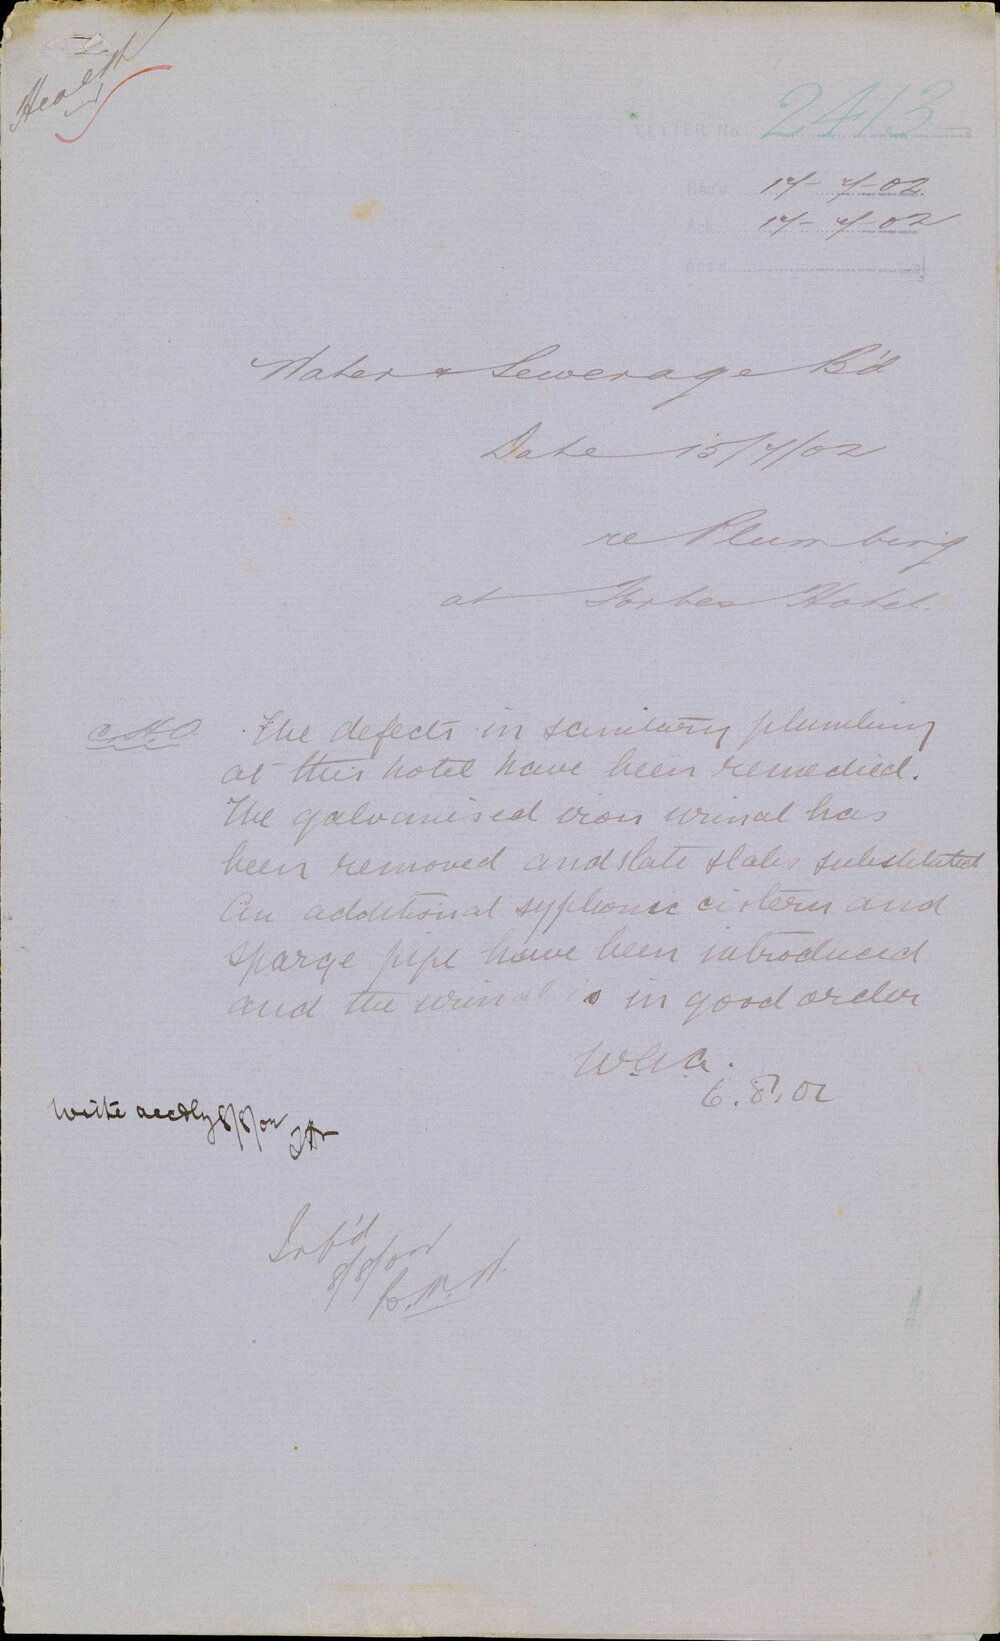 Health
LETTER No. 2413
Rec'd 17-7-02.
Ack. 17-7-02
Ans'd
Water & Sewerage B'd
Date 15/7/02
re Plumbing
at Forbes Hotel.
C.H.O. The defects in sanitary plumbing
at this hotel have been remedied.
The galvanised iron urinal has
been removed and slate slabs substituted
An additional syphonic cistern and
sparge pipe have been introduced
and the urinal is in good order
W.G.G.
6.8.02
Write accdly 8/8/02
8/8/02